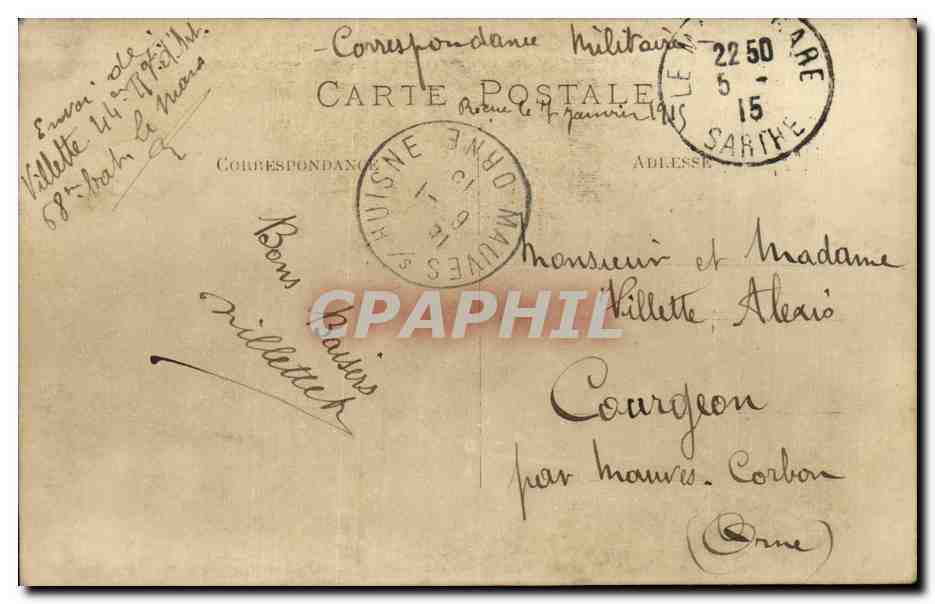 - Correspondance Militaire -
CARTE POSTALE
Reçue le 7 janvier 1915
Envoi de :
Villette 44e Rt d'Art.
68me batie Le Mans
CORRESPONDANCE
ADRESSE
LE MANS GARE
22 50
5 -
15
SARTHE
MAUVES S/ HUISNE ORNE
6 - 1
15
Bons Baisers
Villette
Monsieur et Madame
Villette Alexis
Courgeon
par Mauves-Corbon
(Orne)
CPAPHIL